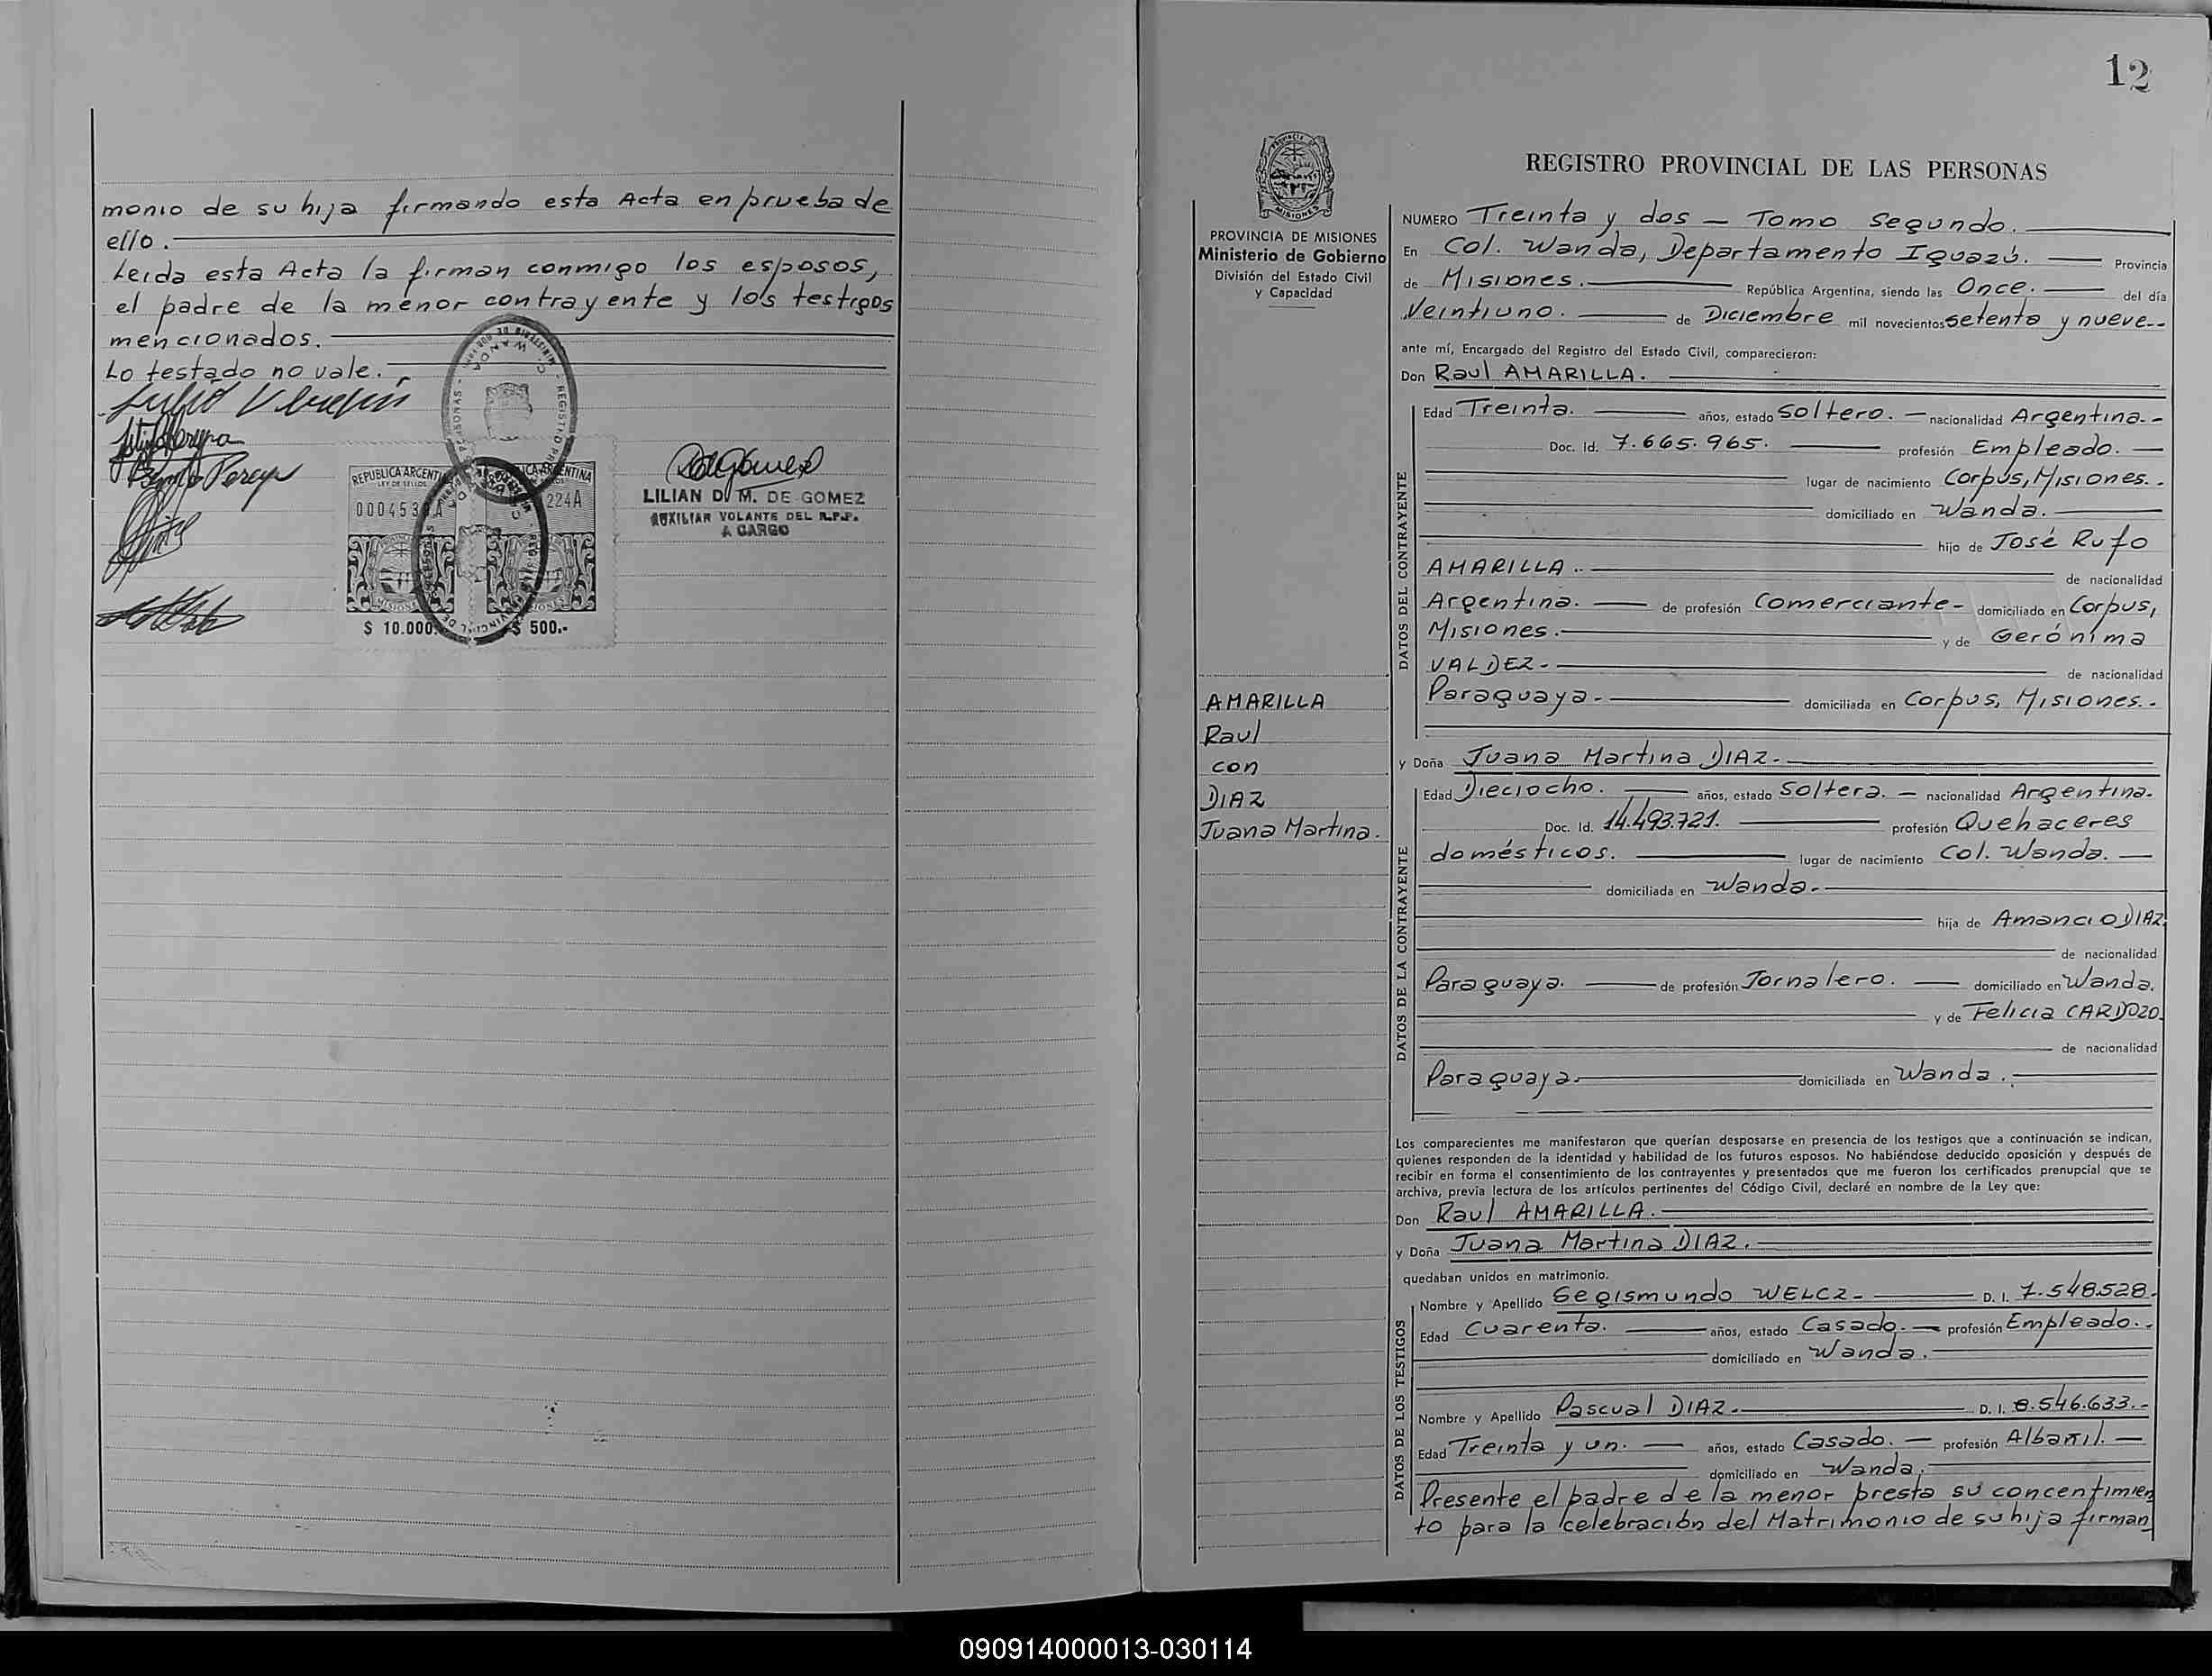 monio de su hija firmando esta Acta en prueba de
ello.
Leida esta Acta la firman conmigo los esposos,
el padre de la menor contrayente y los testigos
mencionados.
Lo testado no vale.
REPUBLICA ARGENTINA
LEY DE SELLOS
224A
MISIONES
$ 10.000.-
$ 500.-
LILIAN D. M. DE GOMEZ
AUXILIAR VOLANTE DEL R.P.P.
A CARGO
12
PROVINCIA DE MISIONES
Ministerio de Gobierno
División del Estado Civil
y Capacidad
AMARILLA
Raul
con
DIAZ
Juana Martina.
REGISTRO PROVINCIAL DE LAS PERSONAS
NUMERO Treinta y dos - Tomo segundo.
En Col. Wanda, Departamento Iguazú. Provincia
de Misiones. República Argentina, siendo las Once. del día
Veintiuno. de Diciembre mil novecientos setenta y nueve.-
ante mí, Encargado del Registro del Estado Civil, comparecieron:
Don Raul AMARILLA.
DATOS DEL CONTRAYENTE
Edad Treinta. años, estado Soltero. nacionalidad Argentina.-
Doc. Id. 7.665.965. profesión Empleado.
lugar de nacimiento Corpus, Misiones.-
domiciliado en Wanda.
hijo de José Rufo
AMARILLA. de nacionalidad
Argentina. de profesión Comerciante- domiciliado en Corpus,
Misiones. y de Gerónima
VALDEZ- de nacionalidad
Paraguaya- domiciliada en Corpus, Misiones.-
y Doña Juana Martina DIAZ-
DATOS DE LA CONTRAYENTE
Edad Dieciocho. años, estado Soltera. nacionalidad Argentina.
Doc. Id. 14.493.721. profesión Quehaceres
domésticos. lugar de nacimiento Col. Wanda.
domiciliada en Wanda-
hija de Amancio DIAZ
de nacionalidad
Paraguaya. de profesión Jornalero. domiciliado en Wanda.
y de Felicia CARDOZO.
de nacionalidad
Paraguaya. domiciliada en Wanda.
Los comparecientes me manifestaron que querían desposarse en presencia de los testigos que a continuación se indican,
quienes responden de la identidad y habilidad de los futuros esposos. No habiéndose deducido oposición y después de
recibir en forma el consentimiento de los contrayentes y presentados que me fueron los certificados prenupcial que se
archiva, previa lectura de los artículos pertinentes del Código Civil, declaré en nombre de la Ley que:
Don Raul AMARILLA.
y Doña Juana Martina DIAZ.
quedaban unidos en matrimonio.
DATOS DE LOS TESTIGOS
Nombre y Apellido Segismundo WELCZ- D. I. 7.548.528.
Edad Cuarenta. años, estado Casado. profesión Empleado.-
domiciliado en Wanda.
Nombre y Apellido Pascual DIAZ- D. I. 8.546.633.-
Edad Treinta y un. años, estado Casado. profesión Albañil.
domiciliado en Wanda.
Presente el padre de la menor presta su concentimien
to para la celebración del Matrimonio de su hija firman
090914000013-030114